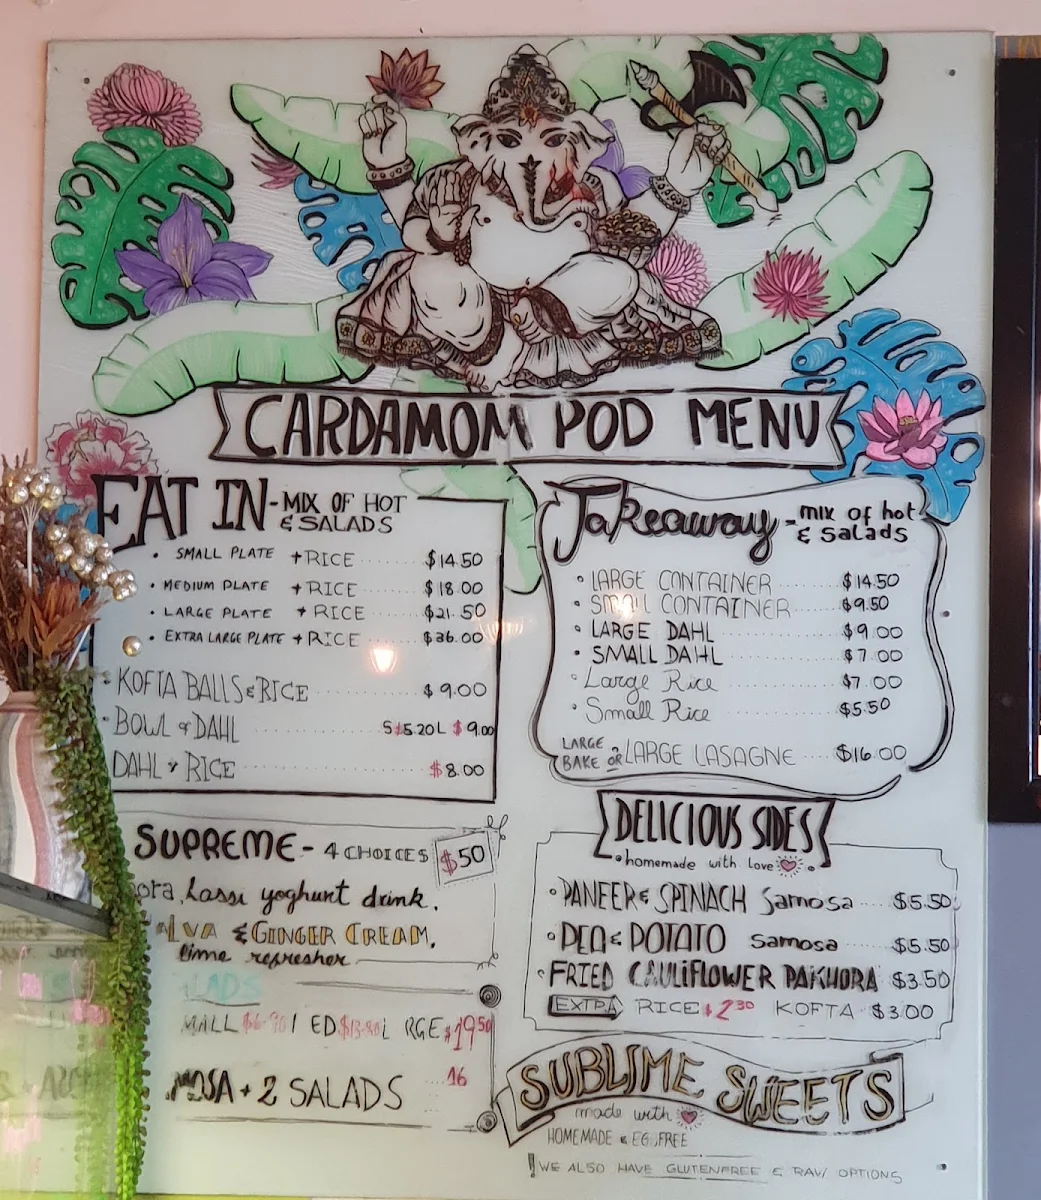 CARDAMOM POD MENU
EAT IN - MIX OF HOT
& SALADS
• SMALL PLATE + RICE $14.50
• MEDIUM PLATE + RICE $18.00
• LARGE PLATE + RICE $21.50
• EXTRA LARGE PLATE + RICE $36.00
• KOFTA BALLS & RICE $9.00
• BOWL of DAHL S $5.20 L $9.00
DAHL & RICE $8.00
Takeaway - mix of hot
& salads
• LARGE CONTAINER $14.50
• SMALL CONTAINER $9.50
• LARGE DAHL $9.00
• SMALL DAHL $7.00
• Large Rice $7.00
• Small Rice $5.50
LARGE BAKE OR LARGE LASAGNE $16.00
SUPREME - 4 CHOICES $50
ora, Lassi yoghurt drink,
ALVA & GINGER CREAM,
lime refresher
LADS
MALL ED LRGE $19.50
MOSA + 2 SALADS 16
DELICIOUS SIDES
• homemade with love •
• PANEER & SPINACH Samosa $5.50
• PEA & POTATO Samosa $5.50
• FRIED CAULIFLOWER PAKHORA $3.50
EXTRA RICE $2.30 KOFTA $3.00
SUBLIME SWEETS
made with
HOMEMADE & EGG FREE
! WE ALSO HAVE GLUTENFREE & RAW OPTIONS